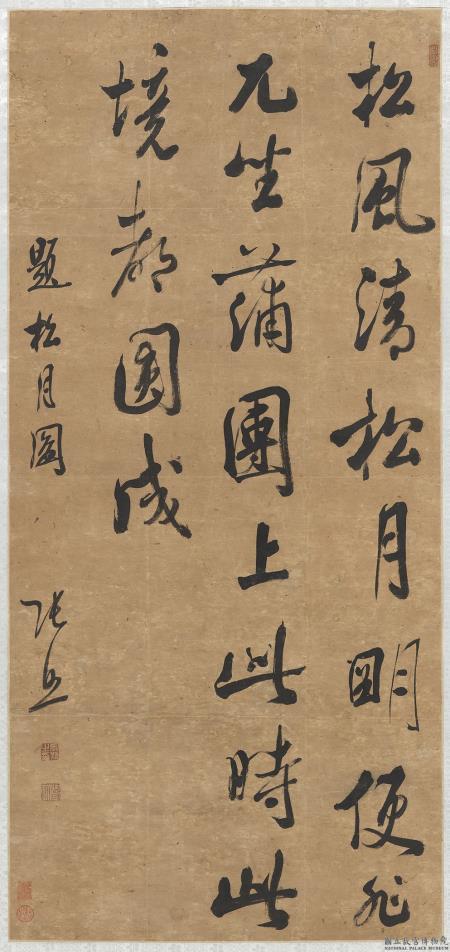 松風清松月明便非
兀坐蒲團上此時此
境都圓成
題松月圖
張照
國立故宮博物院
NATIONAL PALACE MUSEUM